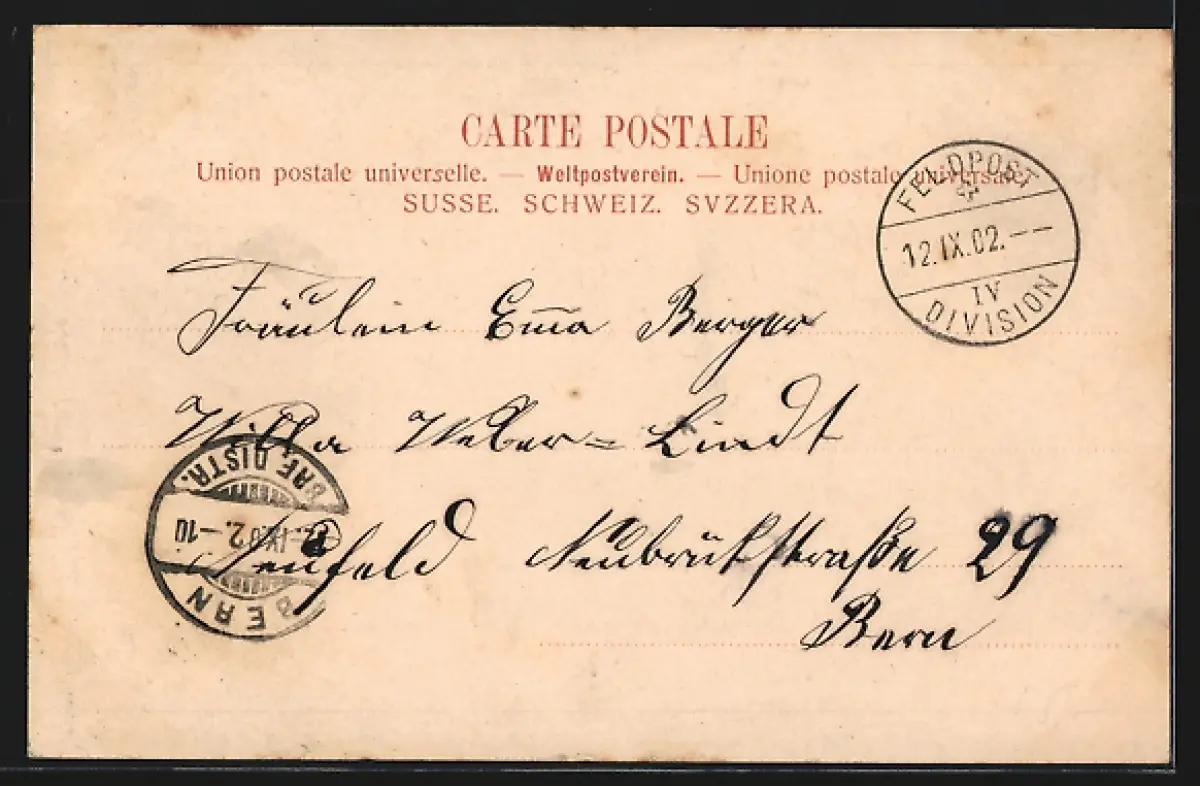 CARTE POSTALE
Union postale universelle. — Weltpostverein. — Unione postale universale.
SUSSE. SCHWEIZ. SVZZERA.
FELDPOST
12.IX.02.--
IV
DIVISION
Fräulein Em̅a Berger
Villa Weber=Lindt
Neufeld Neubrükstraße 29
Bern
BRF DISTR.
.IX.02.-10
BERN